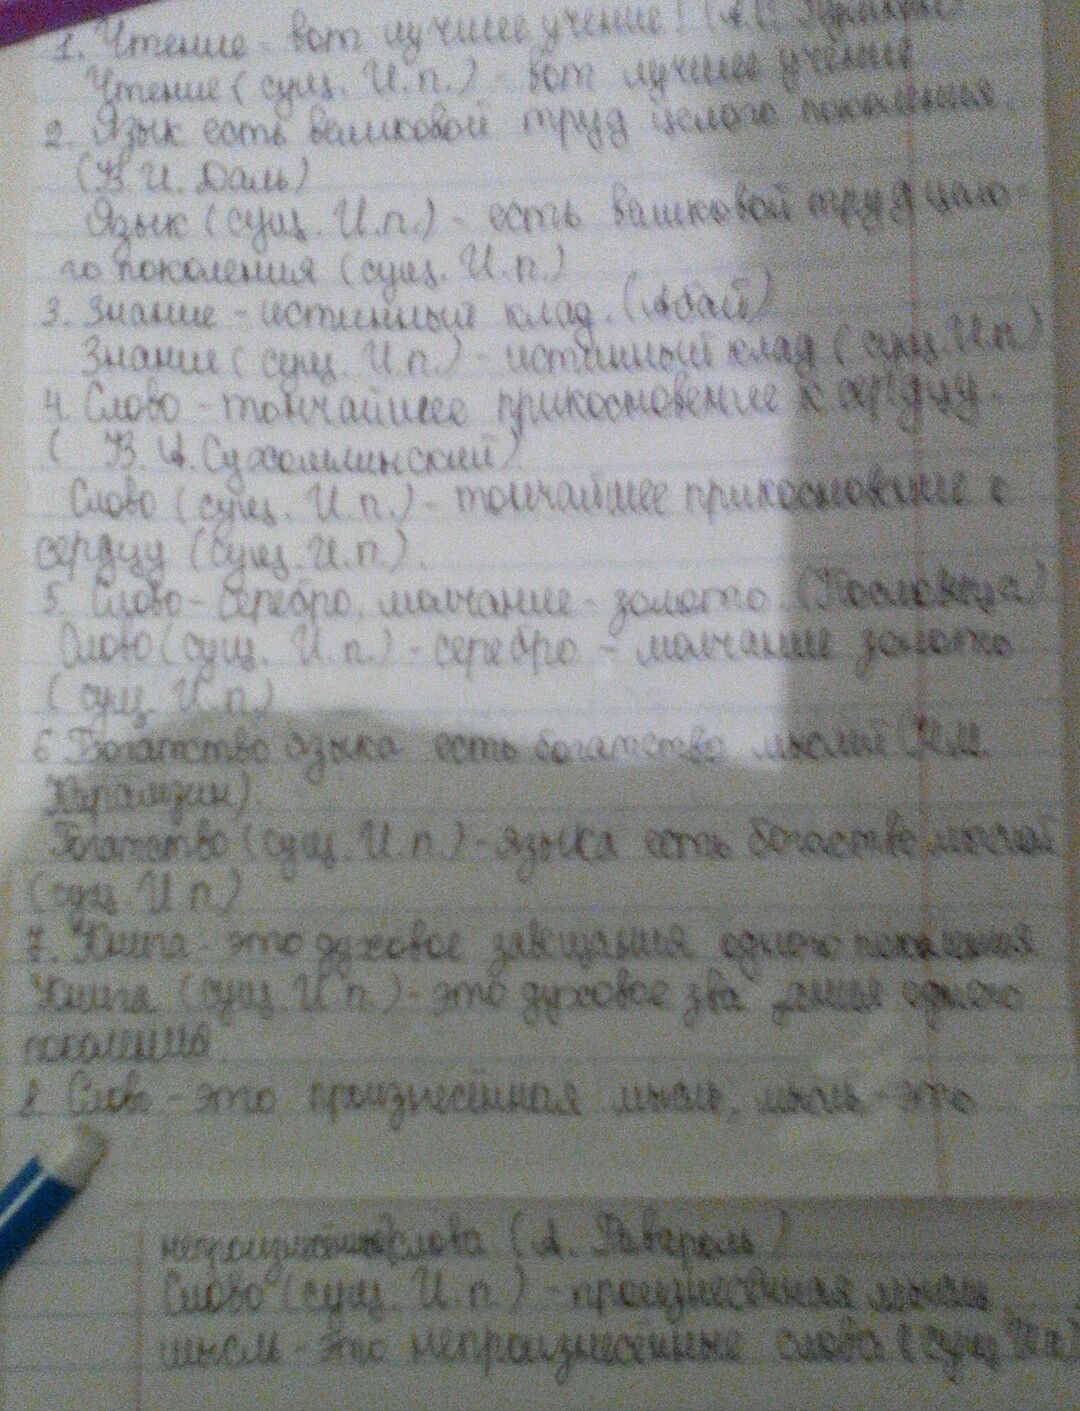 1. Чтение - вот лучшее учение! (А.С. Пушкин)
Чтение (сущ. И.п.) - вот лучшее учение
2. Язык есть вековой труд целого поколения.
(В.И. Даль)
Язык (сущ. И.п.) - есть вековой труд цело-
го поколения (сущ. И.п.)
3. Знание - истинный клад. (Абай)
Знание (сущ. И.п.) - истинный клад (сущ. И.п)
4. Слово - тончайшее прикосновение к сердцу.
( В.А. Сухомлинский)
Слово (сущ. И.п.) - тончайшее прикосновение с
сердцу (сущ. И.п.).
5. Слово - серебро, молчание - золото. (Пословица)
Слово (сущ. И.п.) - серебро - молчание золото
(сущ И.п)
6 Богатство языка есть богатство мыслей (Н.М.
Карамзин).
Богатство (сущ. И.п.) - языка есть богаство мыслей
(сущ. И п.)
7. Книга - это духовое завещания одного поколения
Книга (сущ. И.п.) - это духовое одного
поколения.
8 Слово - это произнесённая мысль, мысль - это
слова (А. Ривароль)
Слово (сущ. И.п.) - произнесённая мысль,
мысл - это непроизнесённые слова (сущ И.п)